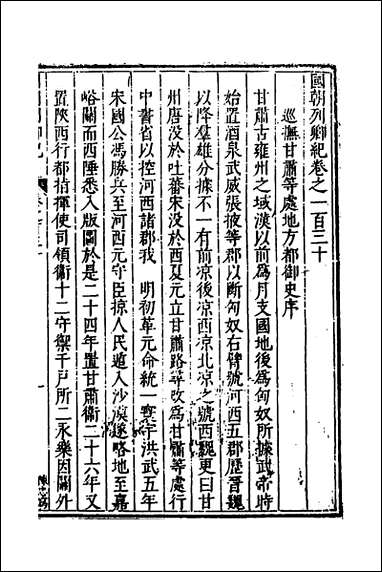 國朝列卿紀卷之一百三十
巡撫甘肅等處地方都御史序
甘肅古雍州之域漢以前為月支國地後為匈奴所據武帝時
始置酒泉武威張掖等郡以斷匈奴右臂號河西五郡歷晉魏
以降羣雄分據不一有前凉後凉西凉北凉之號西魏更曰甘
州唐沒於吐蕃宋沒於西夏元立甘肅路尋改為甘肅等處行
中書省以控河西諸郡我 明初革元命統一寰宇洪武五年
宋國公馮勝兵至河西元守臣掠人民遁入沙漠遂略地至嘉
峪關而西陲悉入版圖於是二十四年置甘肅衞二十六年又
置陝西行都指揮使司領衞十二守禦千戶所二永樂因關外